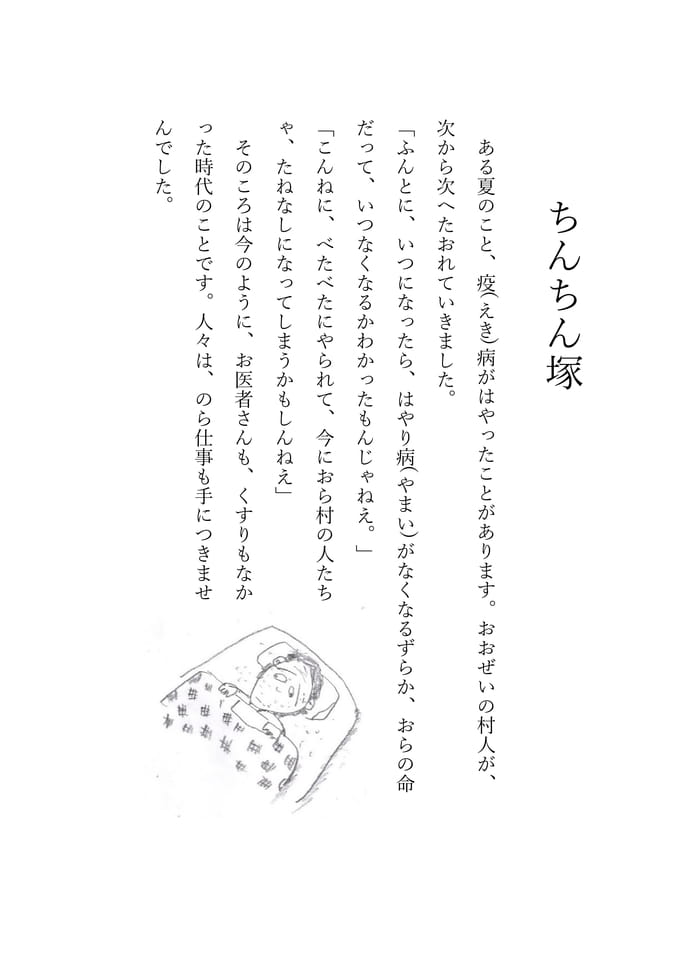 ちんちん塚
ある夏のこと、疫(えき)病がはやったことがあります。おおぜいの村人が、
次から次へたおれていきました。
「ふんとに、いつになったら、はやり病(やまい)がなくなるずらか、おらの命
だって、いつなくなるかわかったもんじゃねえ。」
「こんねに、べたべたにやられて、今におら村の人たち
ゃ、たねなしになってしまうかもしんねえ」
そのころは今のように、お医者さんも、くすりもなか
った時代のことです。人々は、のら仕事も手につきませ
んでした。